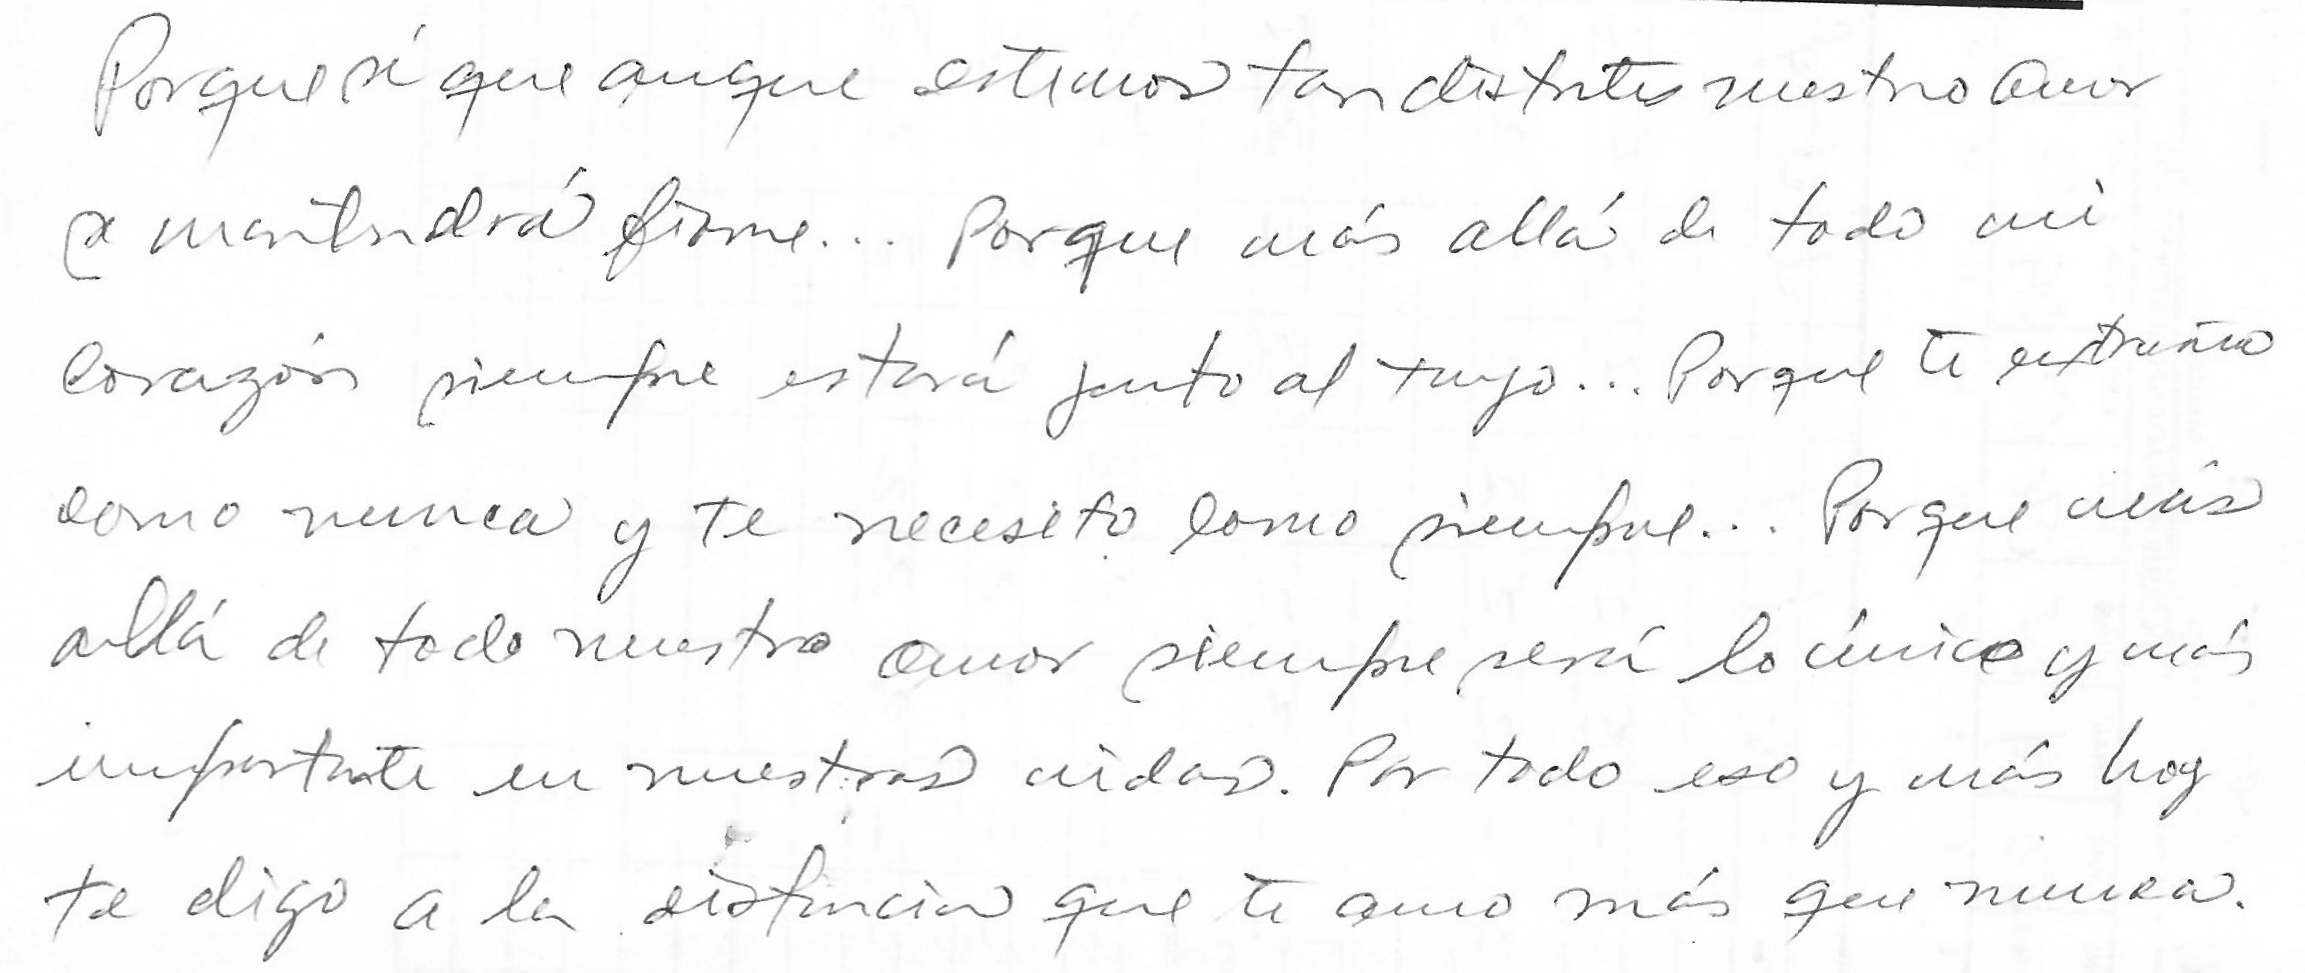 Porque sé que aunque estemos tan distantes nuestro amor
se mantendrá firme... Porque más allá de todo mi
corazón siempre estará junto al tuyo... Porque te extraño
como nunca y te necesito como siempre... Porque más
allá de todo nuestro amor siempre será lo único y más
importante en nuestras vidas. Por todo eso y más hoy
te digo a la distancia que te amo más que nunca.